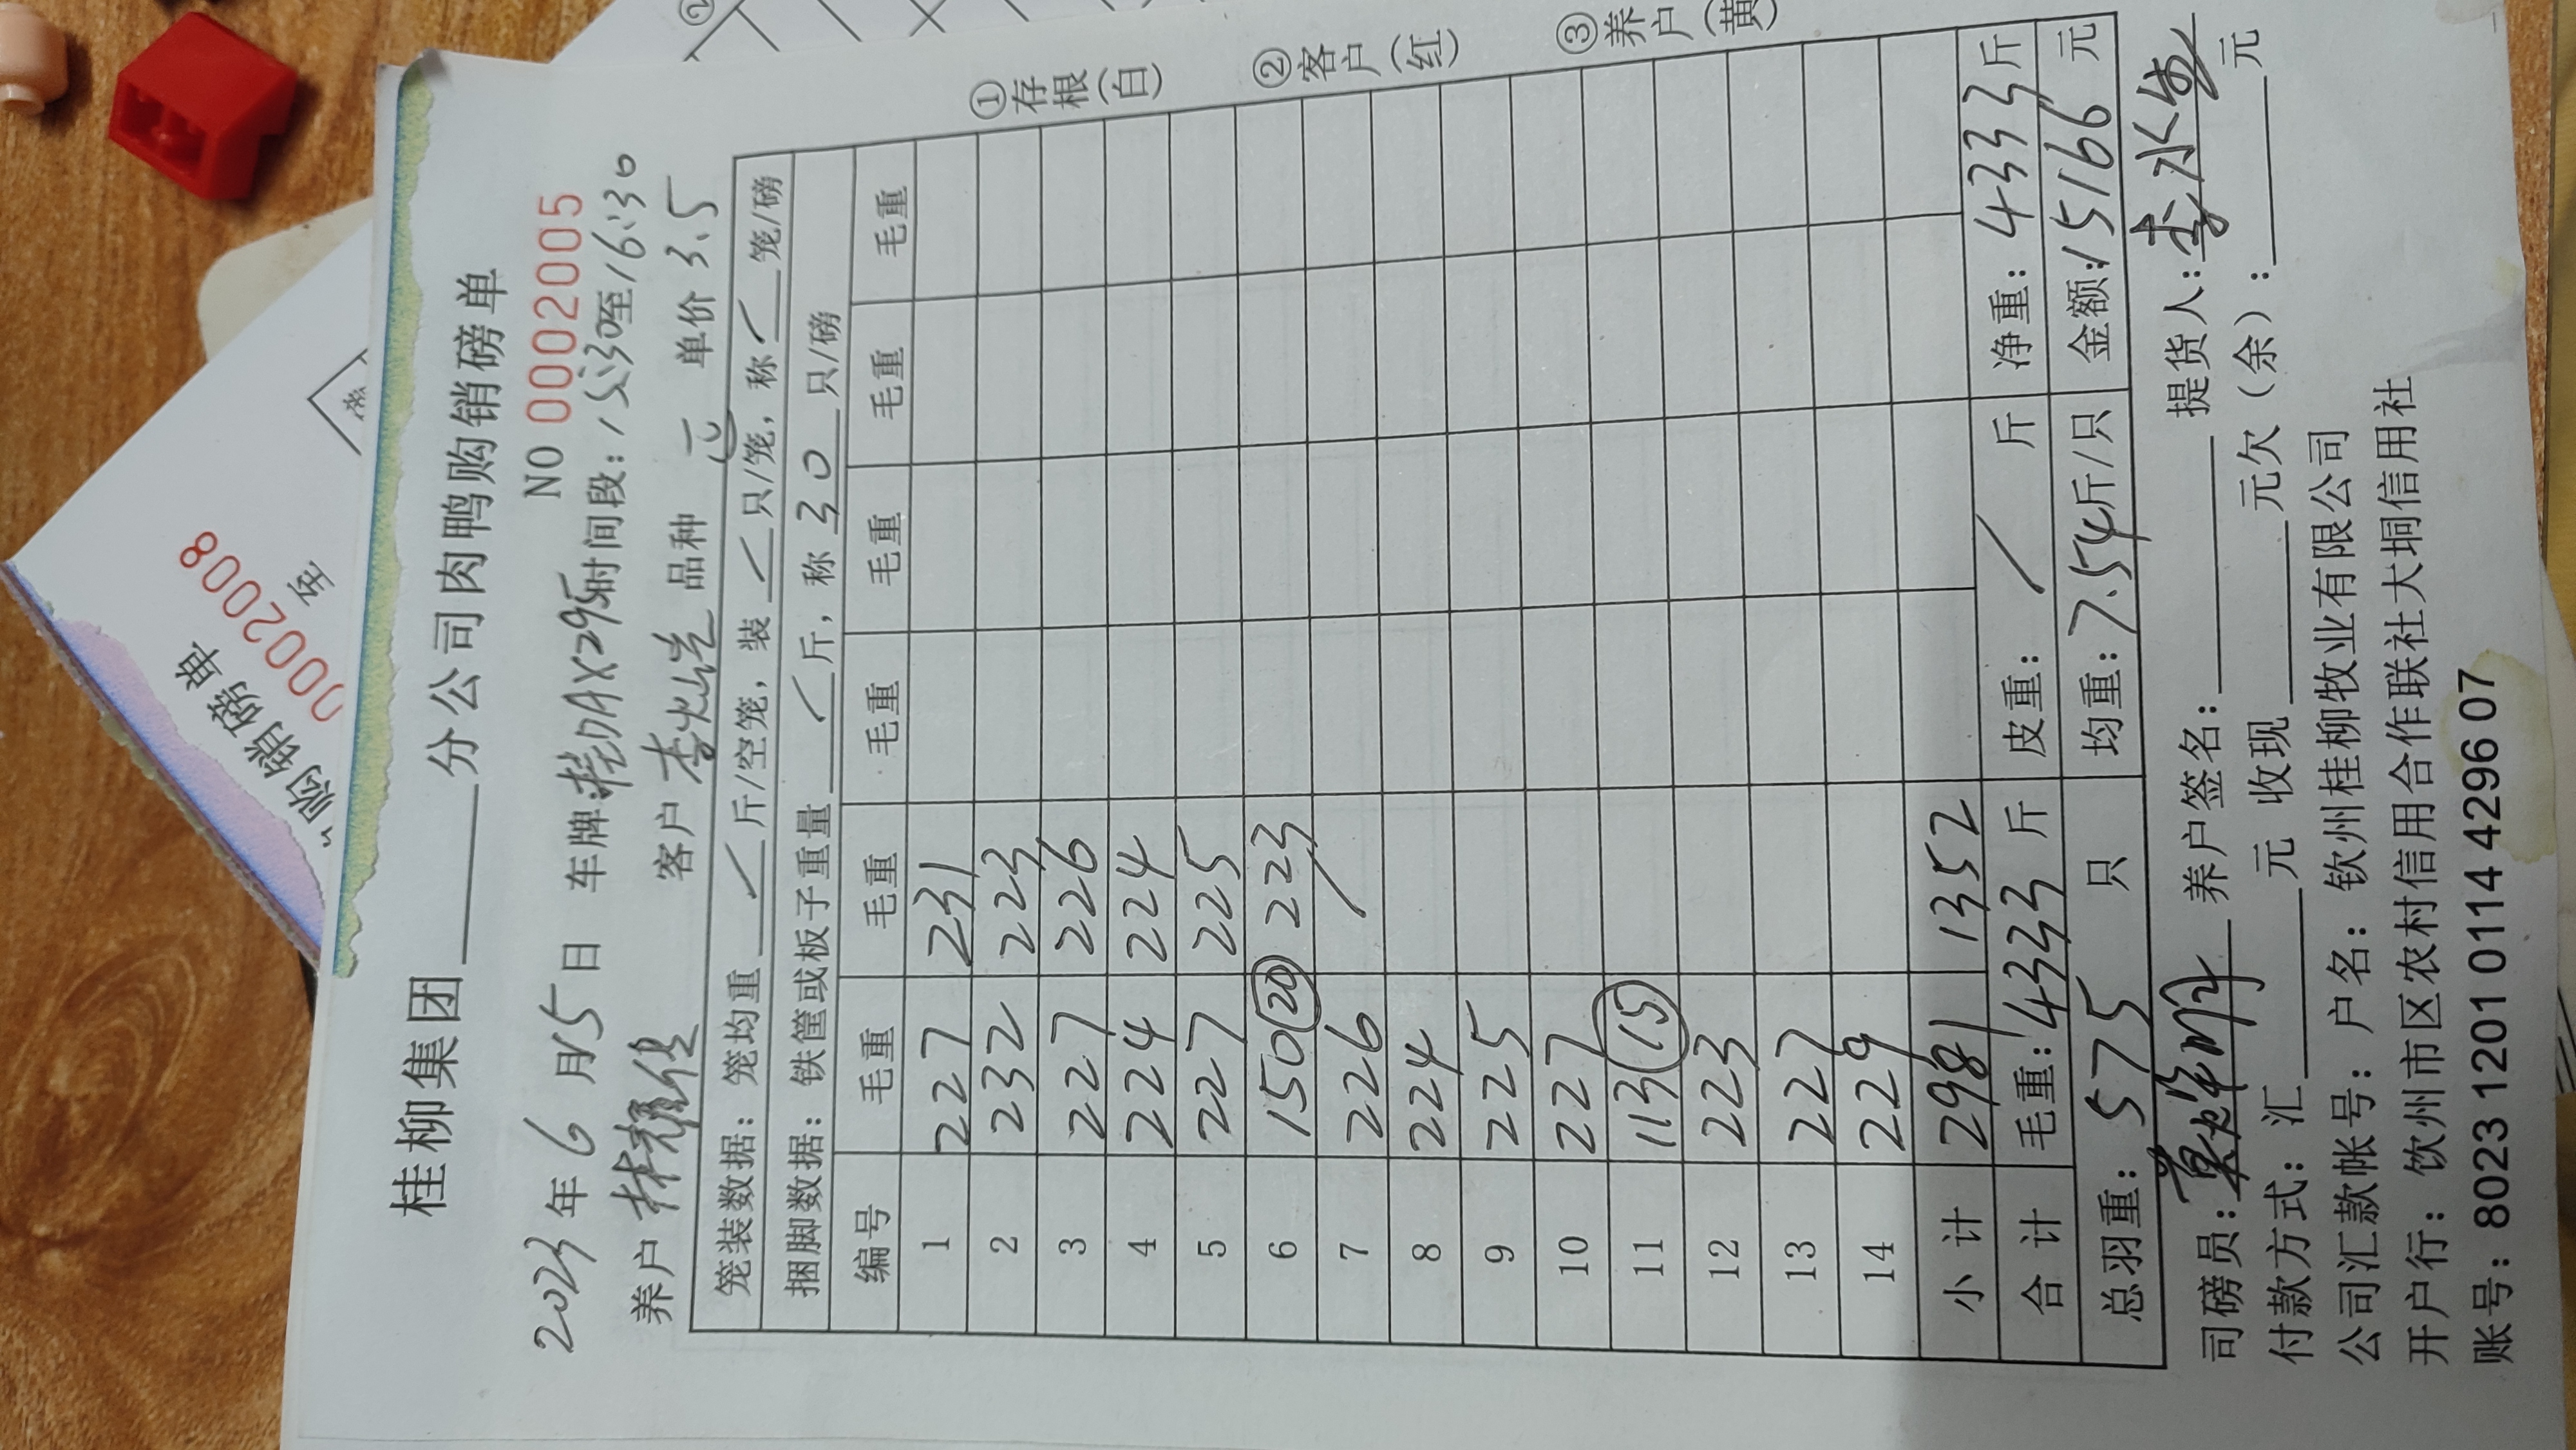 桂柳集团____分公司肉鸭购销磅单
NO 0002005
2023年6月15日 车牌:桂AX295时间段:15:30至16:30
养户 客户 品种 单价 3.5
笼装数据:笼均重 ✓ 斤/空笼,装 ✓ 只/笼,称 ✓ 笼/磅
捆脚数据:铁筐或板子重量 ✓ 斤,称 30 只/磅
编号 毛重 毛重 毛重 毛重 毛重 毛重
1 227 231
2 232 223
3 227 226
4 224 224
5 227 225
6 150 (20) 223
7 226 /
8 224
9 225
10 227
11 113 (15)
12 223
13 227
14 229
小计 2981 1352
合计 毛重:4333 斤 皮重: / 斤 净重:4333斤
总羽重: 575 只 均重:7.54斤/只 金额:15166 元
司磅员: 养户签名: 提货人:
付款方式:汇 元 收现 元欠(余): 元
公司汇款帐号:户名:钦州桂柳牧业有限公司
开户行:饮州市区农村信用合作联社大垌信用社
账号:8023 1201 0114 4296 07
①存根(白) ②客户(红) ③养户(黄
购销磅单
0002008
至
②